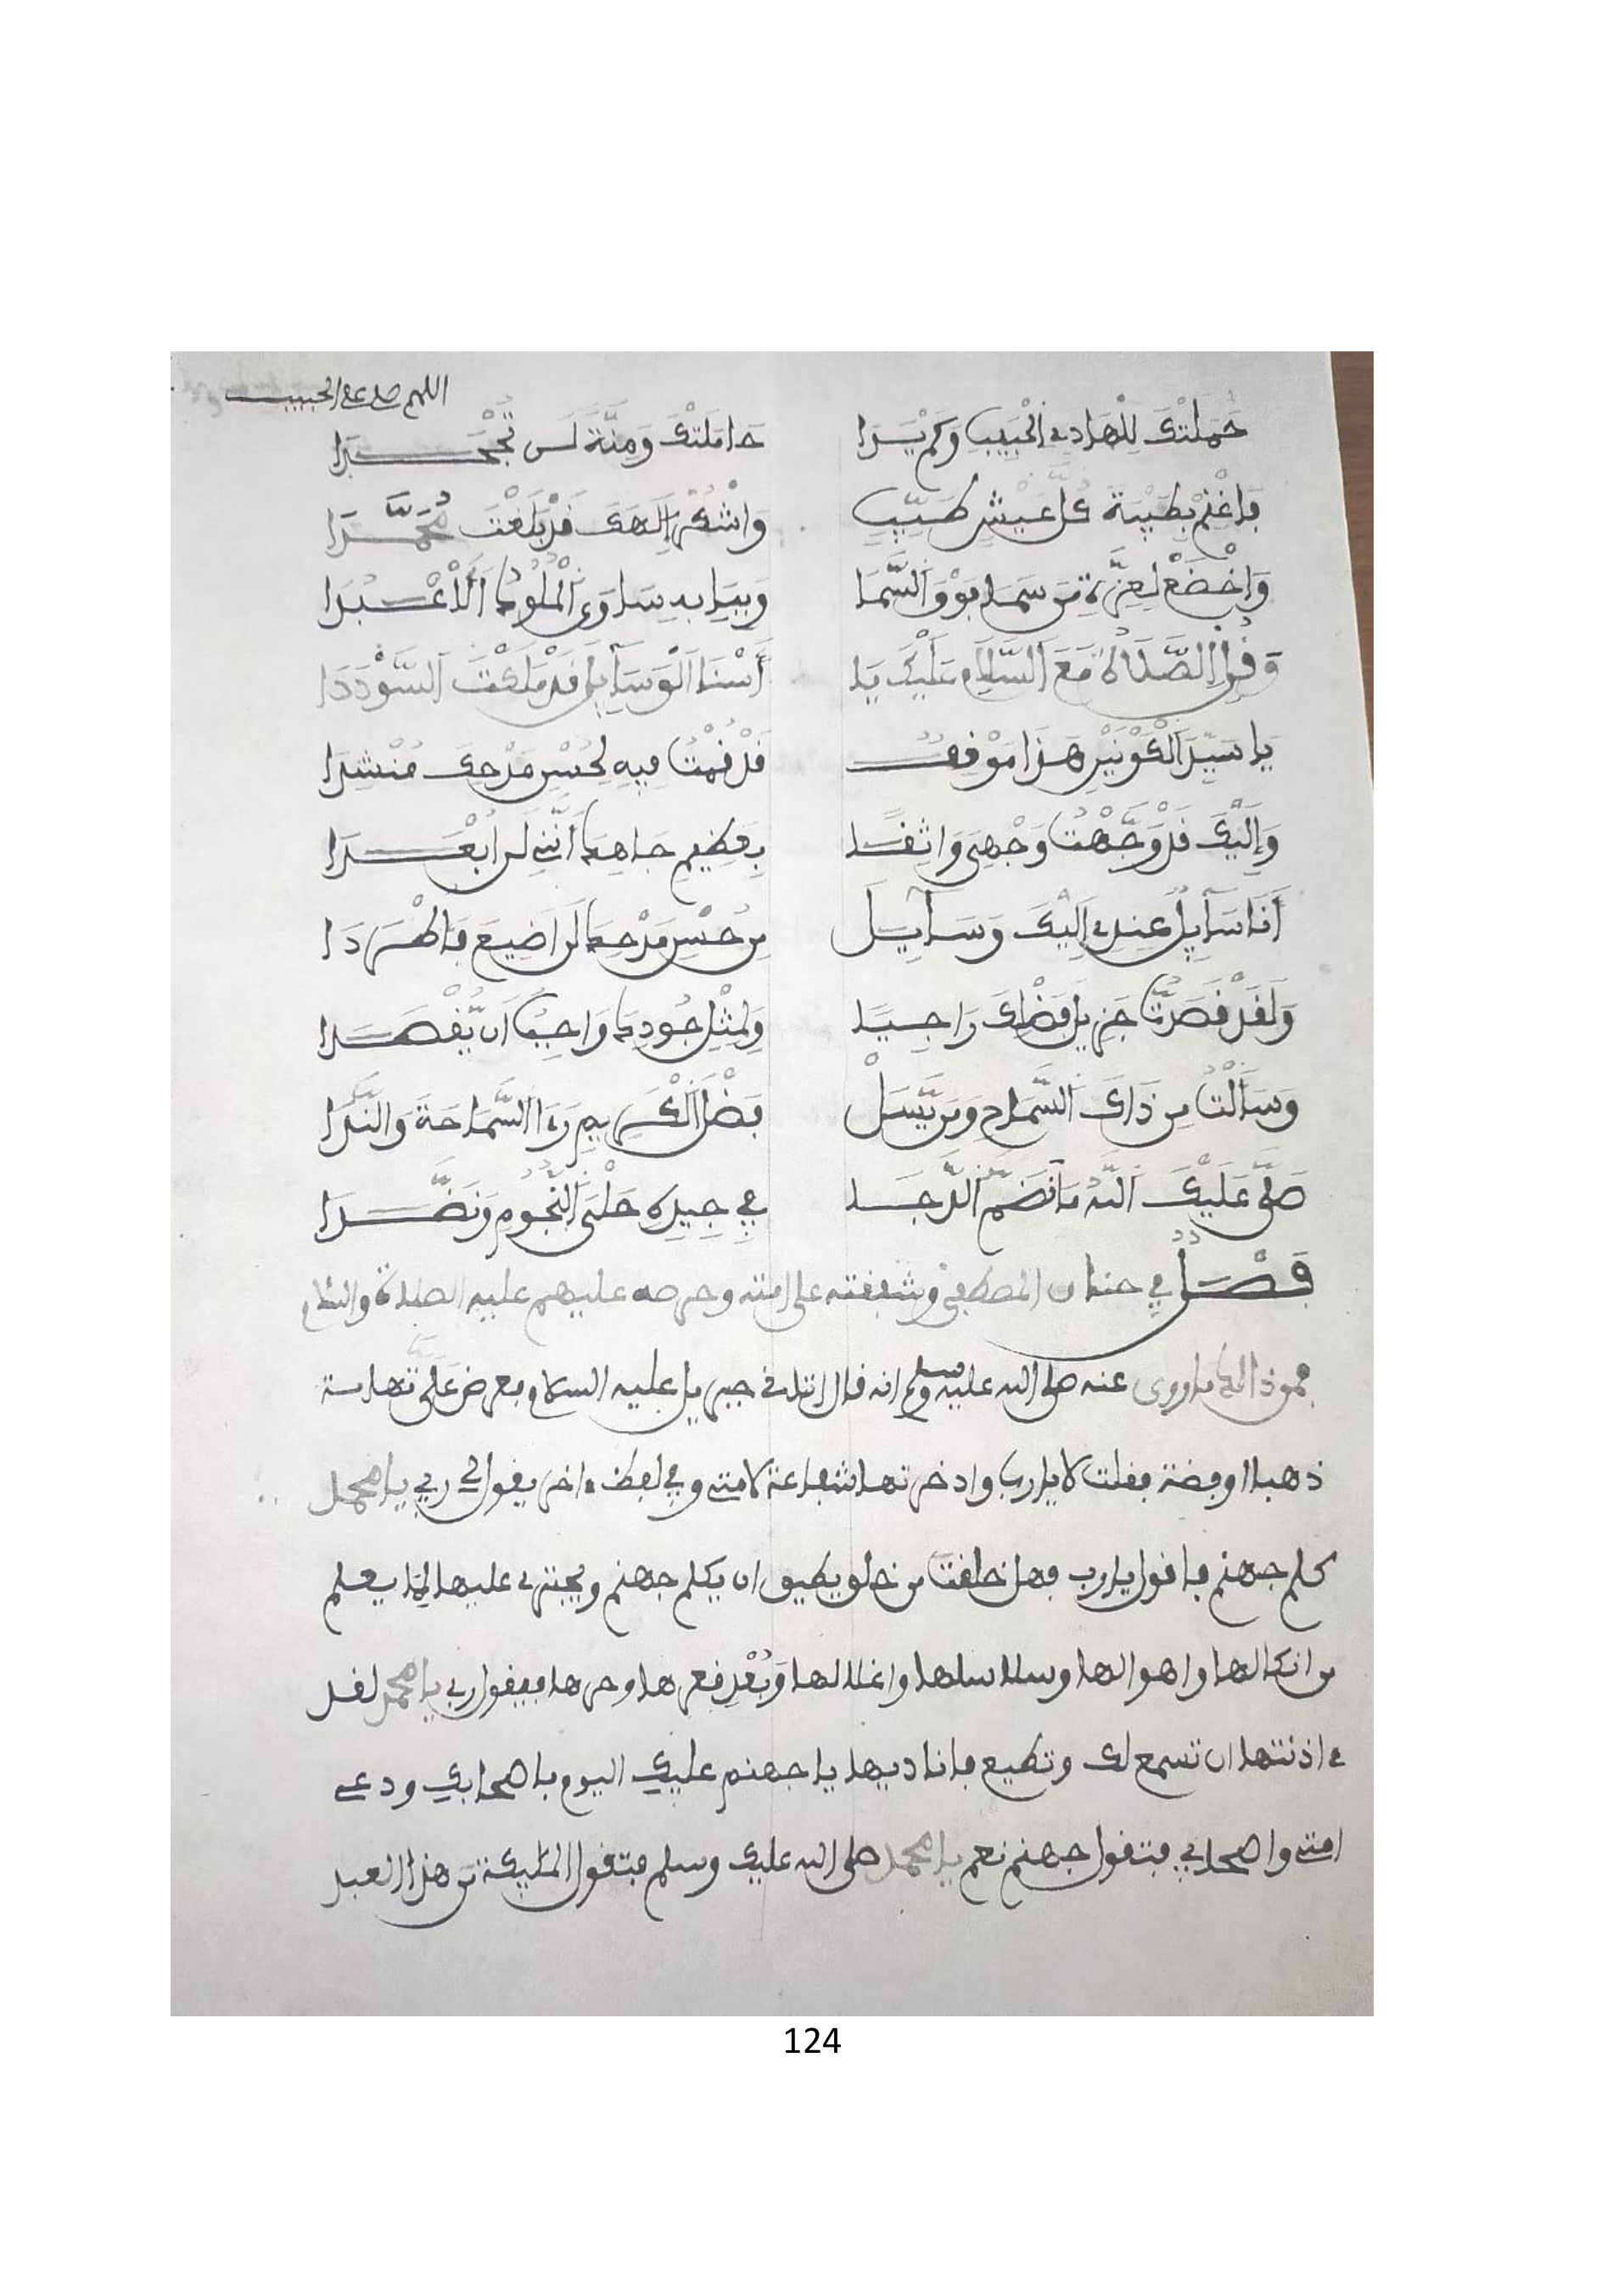 اللهم صل على الحبيب
حَمَلَتْكَ لِلْهَادِي الْحَبِيبِ وَكَمْ يَدَا حَامَلَتْكَ وَمِنَّةً لَن تُجْحَدَا
فَاغْنَمْ بِطَيْبَةَ كُلَّ عَيْشٍ طَيِّبٍ وَاشْكُرْ إِلَهَكَ قَدْ بَلَغْتَ مُحَمَّدَا
وَاخْضَعْ لِعِزَّةِ مَن سَمَا فَوْقَ السَّمَا وَبِبَابِهِ سَاوَى الْمُلُوكُ الَاعْبُدَا
وَقُلِ الصَّلَاةُ مَعَ السَّلَامِ عَلَيْكَ يَا أَسْنَا الْوَسَآيِلِ قَدْ مَلَكْتَ السُّؤْدَدَا
يَا سَيِّدَ الْكَوْنَيْنِ هَذَا مَوْقِفٌ قَدْ قُمْتُ فِيهِ لِحُسْنِ مَدْحِكَ مُنْشِدَا
وَإِلَيْكَ قَدْ وَجَّهْتُ وَجْهِي وَاثِقًا بِعَظِيمِ جَاهِكَ أَنَّنِي لَن ابْعَدَا
أَنَا سَآيِلٌ عِندِي إِلَيْكَ وَسَآيِلٌ مِن حُسْنِ مَدْحِكَ لَن اضِيعَ فَاطْرَدَا
وَلَقَدْ قَصَدتُّ جَزِيلَ فَضْلِكَ رَاجِيًا وَلِمِثْلِ جُودِكَ وَاجِبٌ أَن يُّقْصَدَا
وَسَأَلْتُ مِن ذَاكَ السَّمَاحِ وَمَن يَّسَلْ فَضْلَ الْكَرِيمِ رَءَا السَّمَاحَةَ وَالنَّدَا
صَلَّى عَلَيْكَ اللَّهُ مَا نَضَمَ الدُّجَا فِي جِيدِهِ حَلْيَ النُّجُومِ وَنَضَّدَا
فَصْلٌ فِي حنان المصطفى وشفقته على امته وحرصه عليهم عليه الصلاة والسلام
فمن ذالك ما روي عنه صلى الله عليه وسلم انه قال اتاني جبريل عليه السلام فعرض عَلَيَّ تهامة
ذهبا او فضة فقلت لا يا رب وادخرتها شفاعة لامتي وفي لفظ ءاخر يقول لي ربي يا محمد
كلم جهنم فاقول يا رب وهل خلقت من خلق يطيق ان يكلم جهنم ويجتري عليها لِمَا يعلم
من انكالها واهوالها وسلاسلها واغلالها وَبُعْدِ قعرها وحرها فيقول ربي يا محمد لقد
اذنتها ان تسمع لك وتطيع فاناديها يا جهنم عليك اليوم باصحابك ودعي
امتي واصحابي فتقول جهنم نعم يا محمد صلى الله عليك وسلم فتقول الملئكة مَن هذا العبد
124